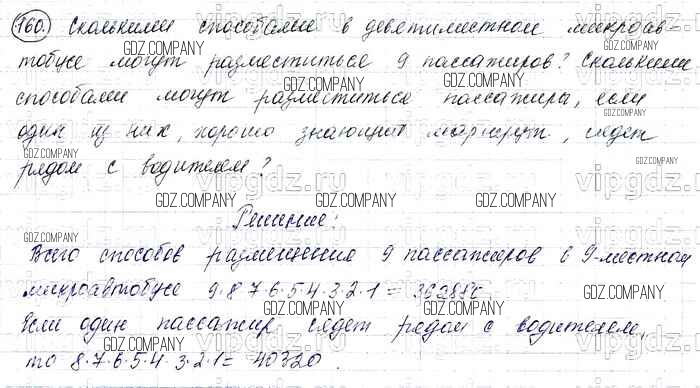 760. Сколькими способами в девятиместном микроав
тобусе могут разместиться 9 пассажиров? Сколькими
способами могут разместиться пассажиры, если
один из них, хорошо знающий маршрут, сядет
рядом с водителем?
Решение:
Всего способов размещения 9 пассажиров в 9-местном
микроавтобусе 9·8·7·6·5·4·3·2·1 = 362880
Если один пассажир сядет рядом с водителем,
то 8·7·6·5·4·3·2·1 = 40320.
GDZ.COMPANY
vipgdz.ru